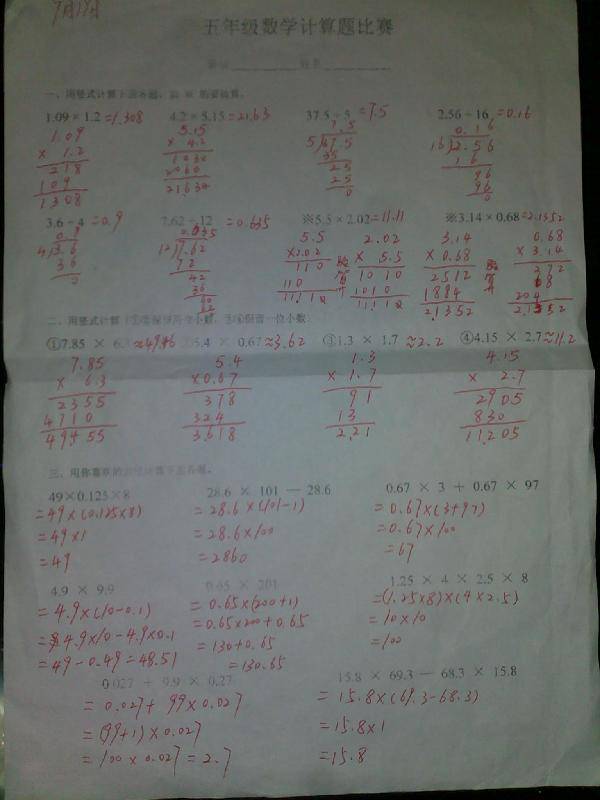 7月17日
五年级数学计算题比赛
1.09 × 1.2 =1.308 4.2 × 5.15 =21.63 37.5 ÷ 5 =7.5 2.56 ÷ 16 =0.16
1.09 5.15 7.5 0.16
× 1.2 × 4.2 5 37.5 16 2.56
218 1030 35 16
109 2060 25 96
1.308 21.630 25 96
0 0
3.6 ÷ 4 =0.9 7.62 ÷ 12 =0.635 ※5.5 × 2.02 =11.11 ※3.14 × 0.68 =2.1352
5.5 2.02 3.14 0.68
×2.02 × 5.5 ×0.68 × 3.14
110 验算 1010 2512 验算 272
110 1010 1884 68
11.110 11.110 2.1352 204
2.1352
①7.85 × 6.3 ≈49.46 ②5.4 × 0.67 ≈3.62 ③1.3 × 1.7 ≈2.2 ④4.15 × 2.7 ≈11.2
7.85 5.4 1.3 4.15
× 6.3 ×0.67 × 1.7 × 2.7
2355 378 91 2905
4710 324 13 830
49.455 3.618 2.21 11.205
三、用你喜欢的方法计算下面各题。
49×0.125×8 28.6 × 101 — 28.6 0.67 × 3 + 0.67 × 97
=49×(0.125×8) =28.6×(101-1) =0.67×(3+97)
=49×1 =28.6×100 =0.67×100
=49 =2860 =67
4.9 × 9.9 0.65 × 201 1.25 × 4 × 2.5 × 8
=4.9×(10-0.1) =0.65×(200+1) =(1.25×8)×(4×2.5)
=4.9×10-4.9×0.1 =0.65×200+0.65 =10×10
=49-0.49=48.51 =130+0.65 =100
=130.65
0.027 + 9.9 × 0.27 15.8 × 69.3 — 68.3 × 15.8
=0.027+ 99×0.027 =15.8×(69.3-68.3)
=(99+1)×0.027 =15.8×1
=100×0.027=2.7 =15.8